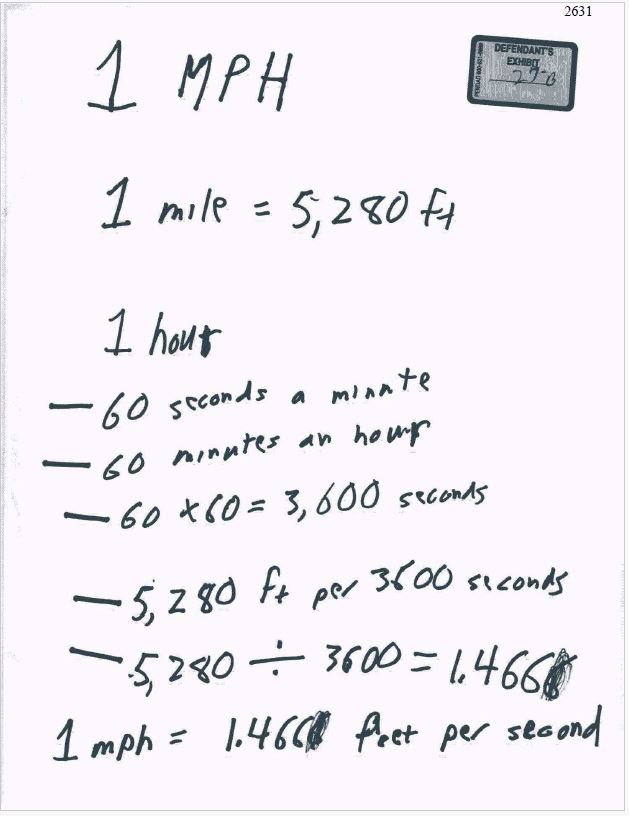 2631
DEFENDANT'S
EXHIBIT
27-B
1 MPH
1 mile = 5,280 ft
1 hour
— 60 seconds a minute
— 60 minutes an hour
— 60 x 60 = 3,600 seconds
— 5,280 ft per 3600 seconds
— 5,280 ÷ 3600 = 1.466
1 mph = 1.466 feet per second